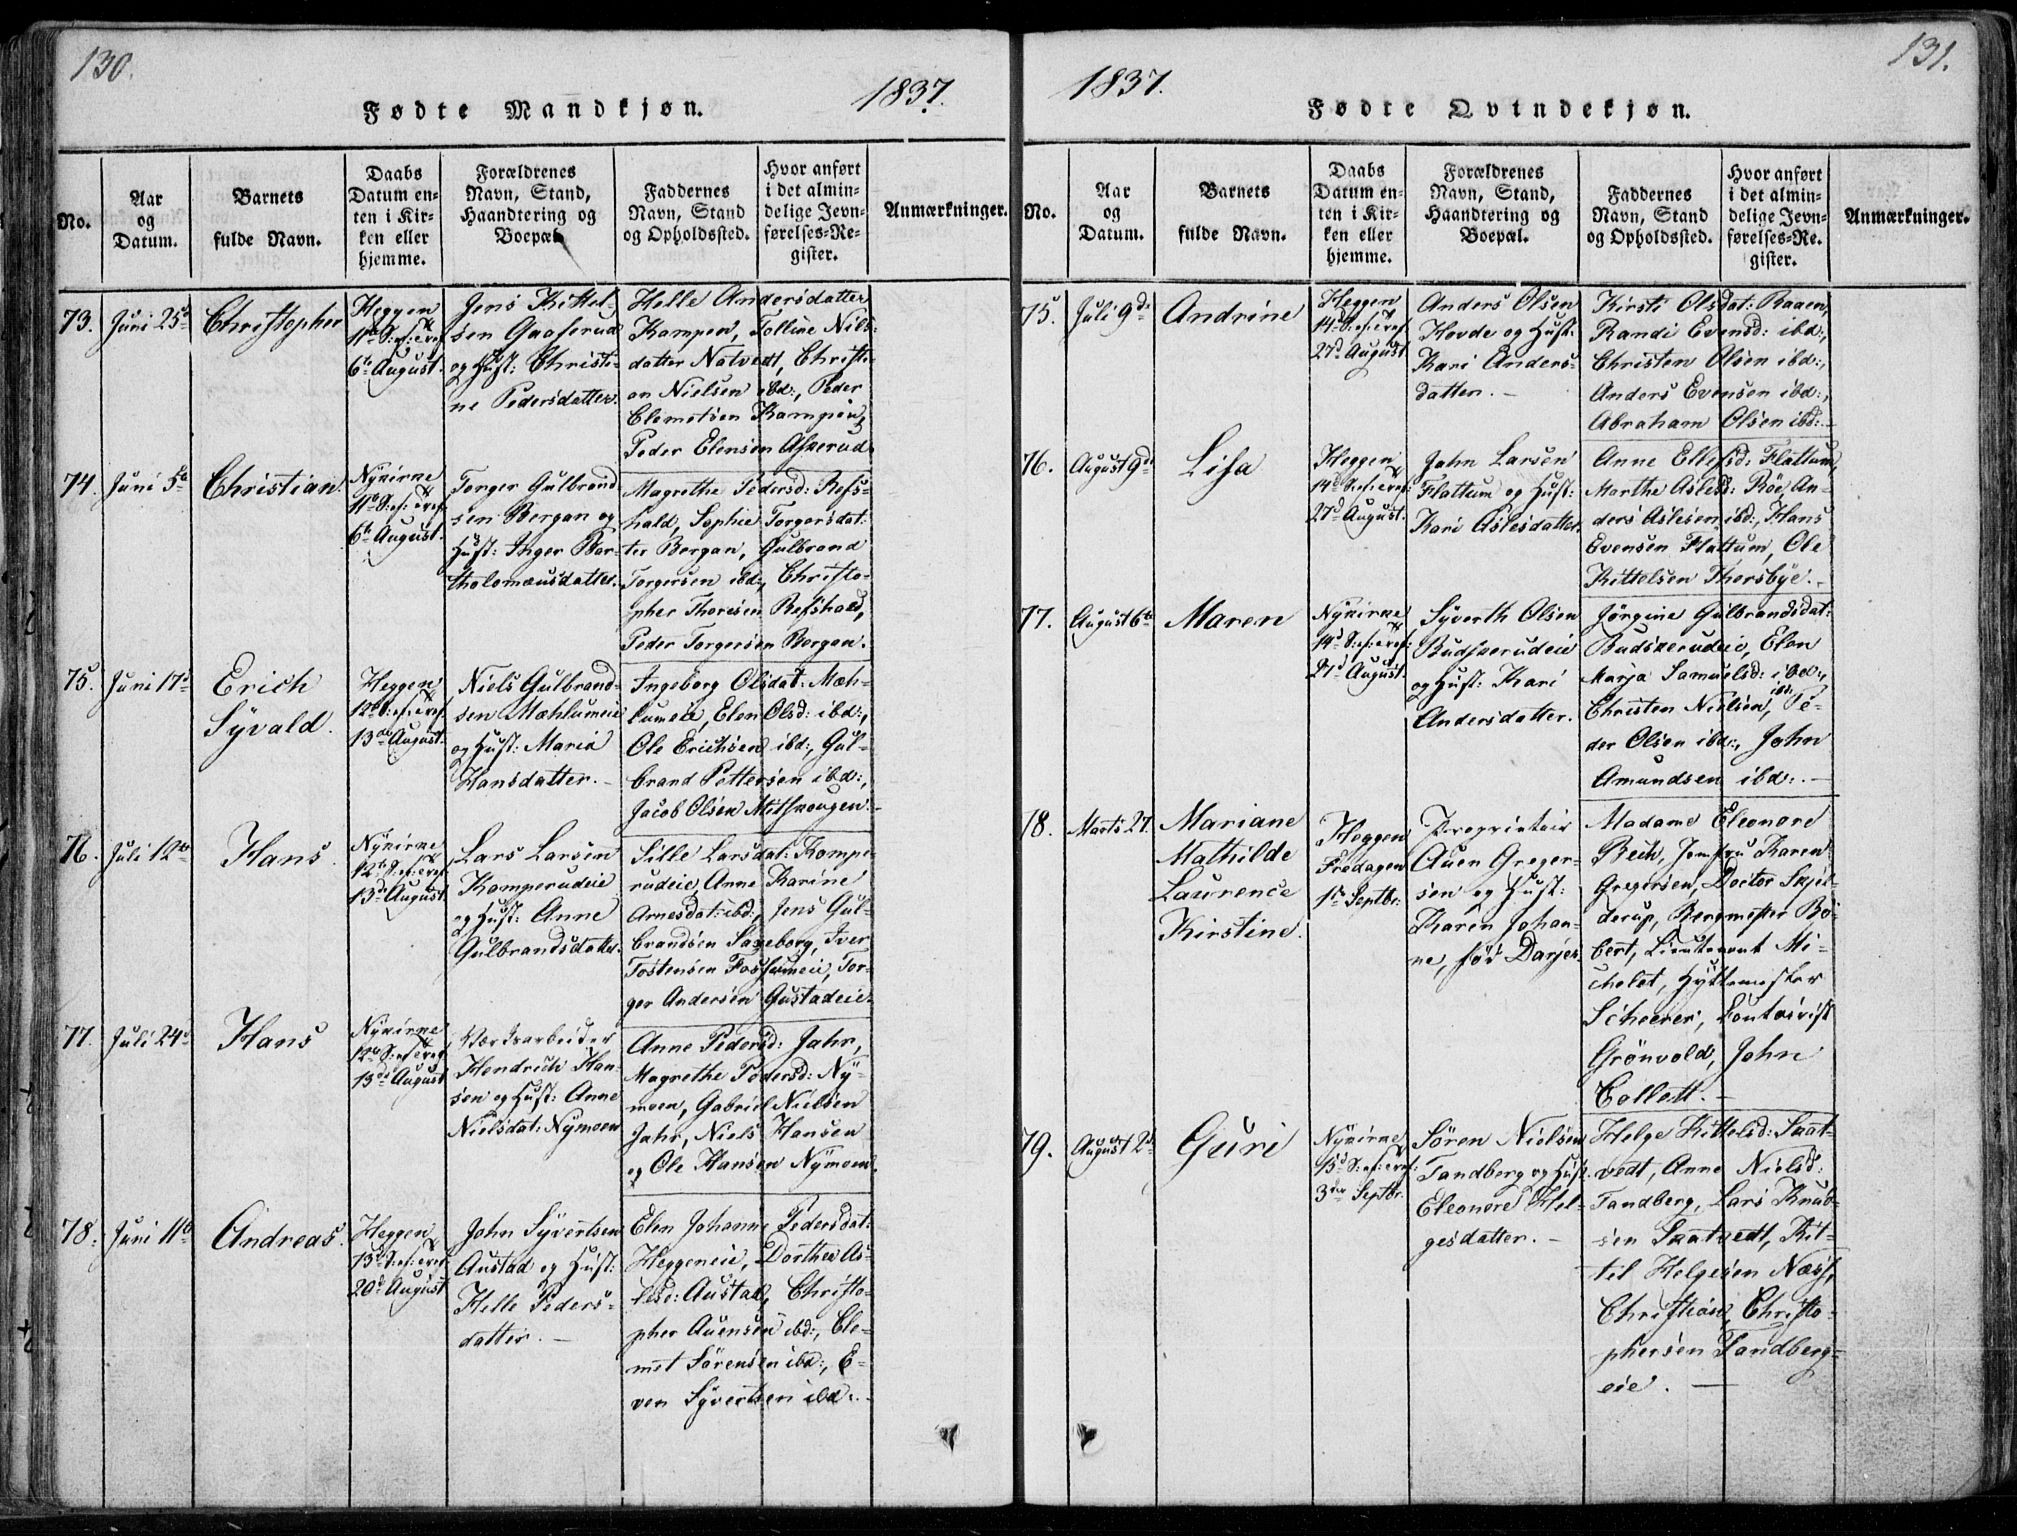 130.
1837.
Fødte Mandkjøn.
No.
Aar
og
Datum.
Barnets
fulde Navn.
Daabs
Datum en-
ten i Kir-
ken eller
hjemme.
Forældrenes
Navn, Stand,
Haandtering og
Boepæl.
Faddernes
Navn, Stand
og Opholdssted.
Hvor anført
i det almin-
delige Jevn-
førelses-Re-
gister.
Anmærkninger.
73.
Juni 25d
Christopher
Heggen
11te S: ef: Tref
6te August.
Jens Kittel-
sen Gaaserud
og Hust: Christi-
ne Pedersdatter.
Helle Andersdatter
Kampen, Tolline Niels-
datter Natvedt, Christi-
an Nielsen ibd:, Peder
Clemetsen Kampen,
Peder Elensen Askerud.
74.
Juni 5te
Christian.
Nykirne
11te S: ef: Tref
6te August.
Torger Gulbrand
sen Bergan og
Hust: Inger Bar-
tholomæusdatter.
Magrethe Pedersd: Refs-
hald, Sophie Torgersdat-
ter Bergan, Gulbrand
Torgersen ibd:, Christo-
pher Thoresen Refshald,
Peder Torgersen Bergan.
75.
Juni 17d
Erich
Syvald.
Heggen
12te S: ef: Tref
13de August.
Niels Gulbrand-
sen Mæhlumeie
og Hust: Maria
Hansdatter. -
Ingeborg Olsdat: Mæh-
lumeie, Elen Olsd: ibd:,
Ole Erichsen ibd:, Gul-
brand Pettersen ibd:,
Jacob Olsen Midtskougen. -
76.
Juli 12te
Hans.
Nykirne
12te S: ef: Tref
13de August
Lars Larsen
Kamperudeie
og Hust: Anne
Gulbrandsdatter.
Sille Larsdat: Kampe-
rudeie, Anne Karine
Arnesdat: ibd:, Jens Gul-
brandsen Sageborg, Iver
Tostensen Fossumeie, Tor-
ger Andersen Gustadeie.
77.
Juli 24d
Hans
Nykirne
12te S: ef: Tref
13de August
Værksarbeider
Hendrich Han-
sen og Hust: Anne
Nielsdat: Nymoen
Anne Pedersd: Jahr,
Magrethe Pedersd: Ny-
moen, Gabriel Nielsen
Jahr, Niels Hansen
og Ole Hansen Nymoen.
78.
Juni 11te
Andreas.
Heggen
13de S: ef: Tref
20de August
John Syvertsen
Austad og Hust:
Helle Peders-
datter. -
Elen Johanne Pedersdat:
Heggeneie, Dorthea As-
lesd: Austad, Christo-
pher Auensen ibd:, Cle-
met Sørensen ibd:, E-
ven Syvertsen ibd: -
131.
1837.
Fødte Qvindekjøn.
No.
Aar
og
Datum.
Barnets
fulde Navn.
Daabs
Datum en-
ten i Kir-
ken eller
hjemme.
Forældrenes
Navn, Stand,
Haandtering og
Boepæl.
Faddernes
Navn, Stand
og Opholdssted.
Hvor anført
i det almin-
delige Jevn-
førelses-Re-
gister.
Anmærkninger.
75.
Juli 9de
Andrine
Heggen
14de S: ef: Tref:
27de August
Anders Olsen
Hovde og Hust:
Kari Anders-
datter. -
Kirsti Olsdat: Raaen,
Randi Evensd: ibd:,
Christen Olsen ibd:,
Anders Evensen ibd:,
Abraham Olsen ibd: -
76.
August 9de
Lisa
Heggen
14de S: ef: Tref:
27de August.
John Larsen
Flattum og Hust:
Kari Aslesdatter.
Anne Ellefsd: Flattum,
Marthe Aslesd: Røe, An-
ders Aslesen ibd:, Hans
Evensen Flattum, Ole
Kittelsen Thorsbye. -
77.
August 6te
Maren
Nykirne
14de S: ef: Tref:
27de August.
Syverth Olsen
Budskerudeie
og Hust: Kari
Andersdatter.
Jørgine Gulbrandsdat:
Budskerudeie, Elen
Marja Samuelsd: ibd:,
Christen Nielsen, ibd: Pe-
der Olsen ibd:, John
Amundsen ibd: -
78.
Marts 27.
Mariane
Mathilde
Laurence
Kirstine.
Heggen
Fredagen
1ste Septbr:
Proprietair
Auen Greger-
sen og Hust:
Karen Johan-
ne, fød Darjes.
Madame Eleonore
Bech, Jomfru Karen
Gregersen, Doctor Skjel-
derup, Bergmester Bø-
bert, Lieutenant Mi-
chelet, Hyttemester
Scheerer, Contoirist
Grønvold, John
Collett. -
79.
August 2d
Guri
Nykirne
15de S: ef: Tref:
3die Septbr.
Søren Nielsen
Tandberg og Hust:
Eleonore Hel-
gesdatter. -
Helge Kittelsd: Saat-
vedt, Anne Nielsd:
Tandberg, Lars Knud-
sen Saatvedt, Kit-
tel Helgesen Næss,
Christian Christo-
phersen Tandberg-
eie. -